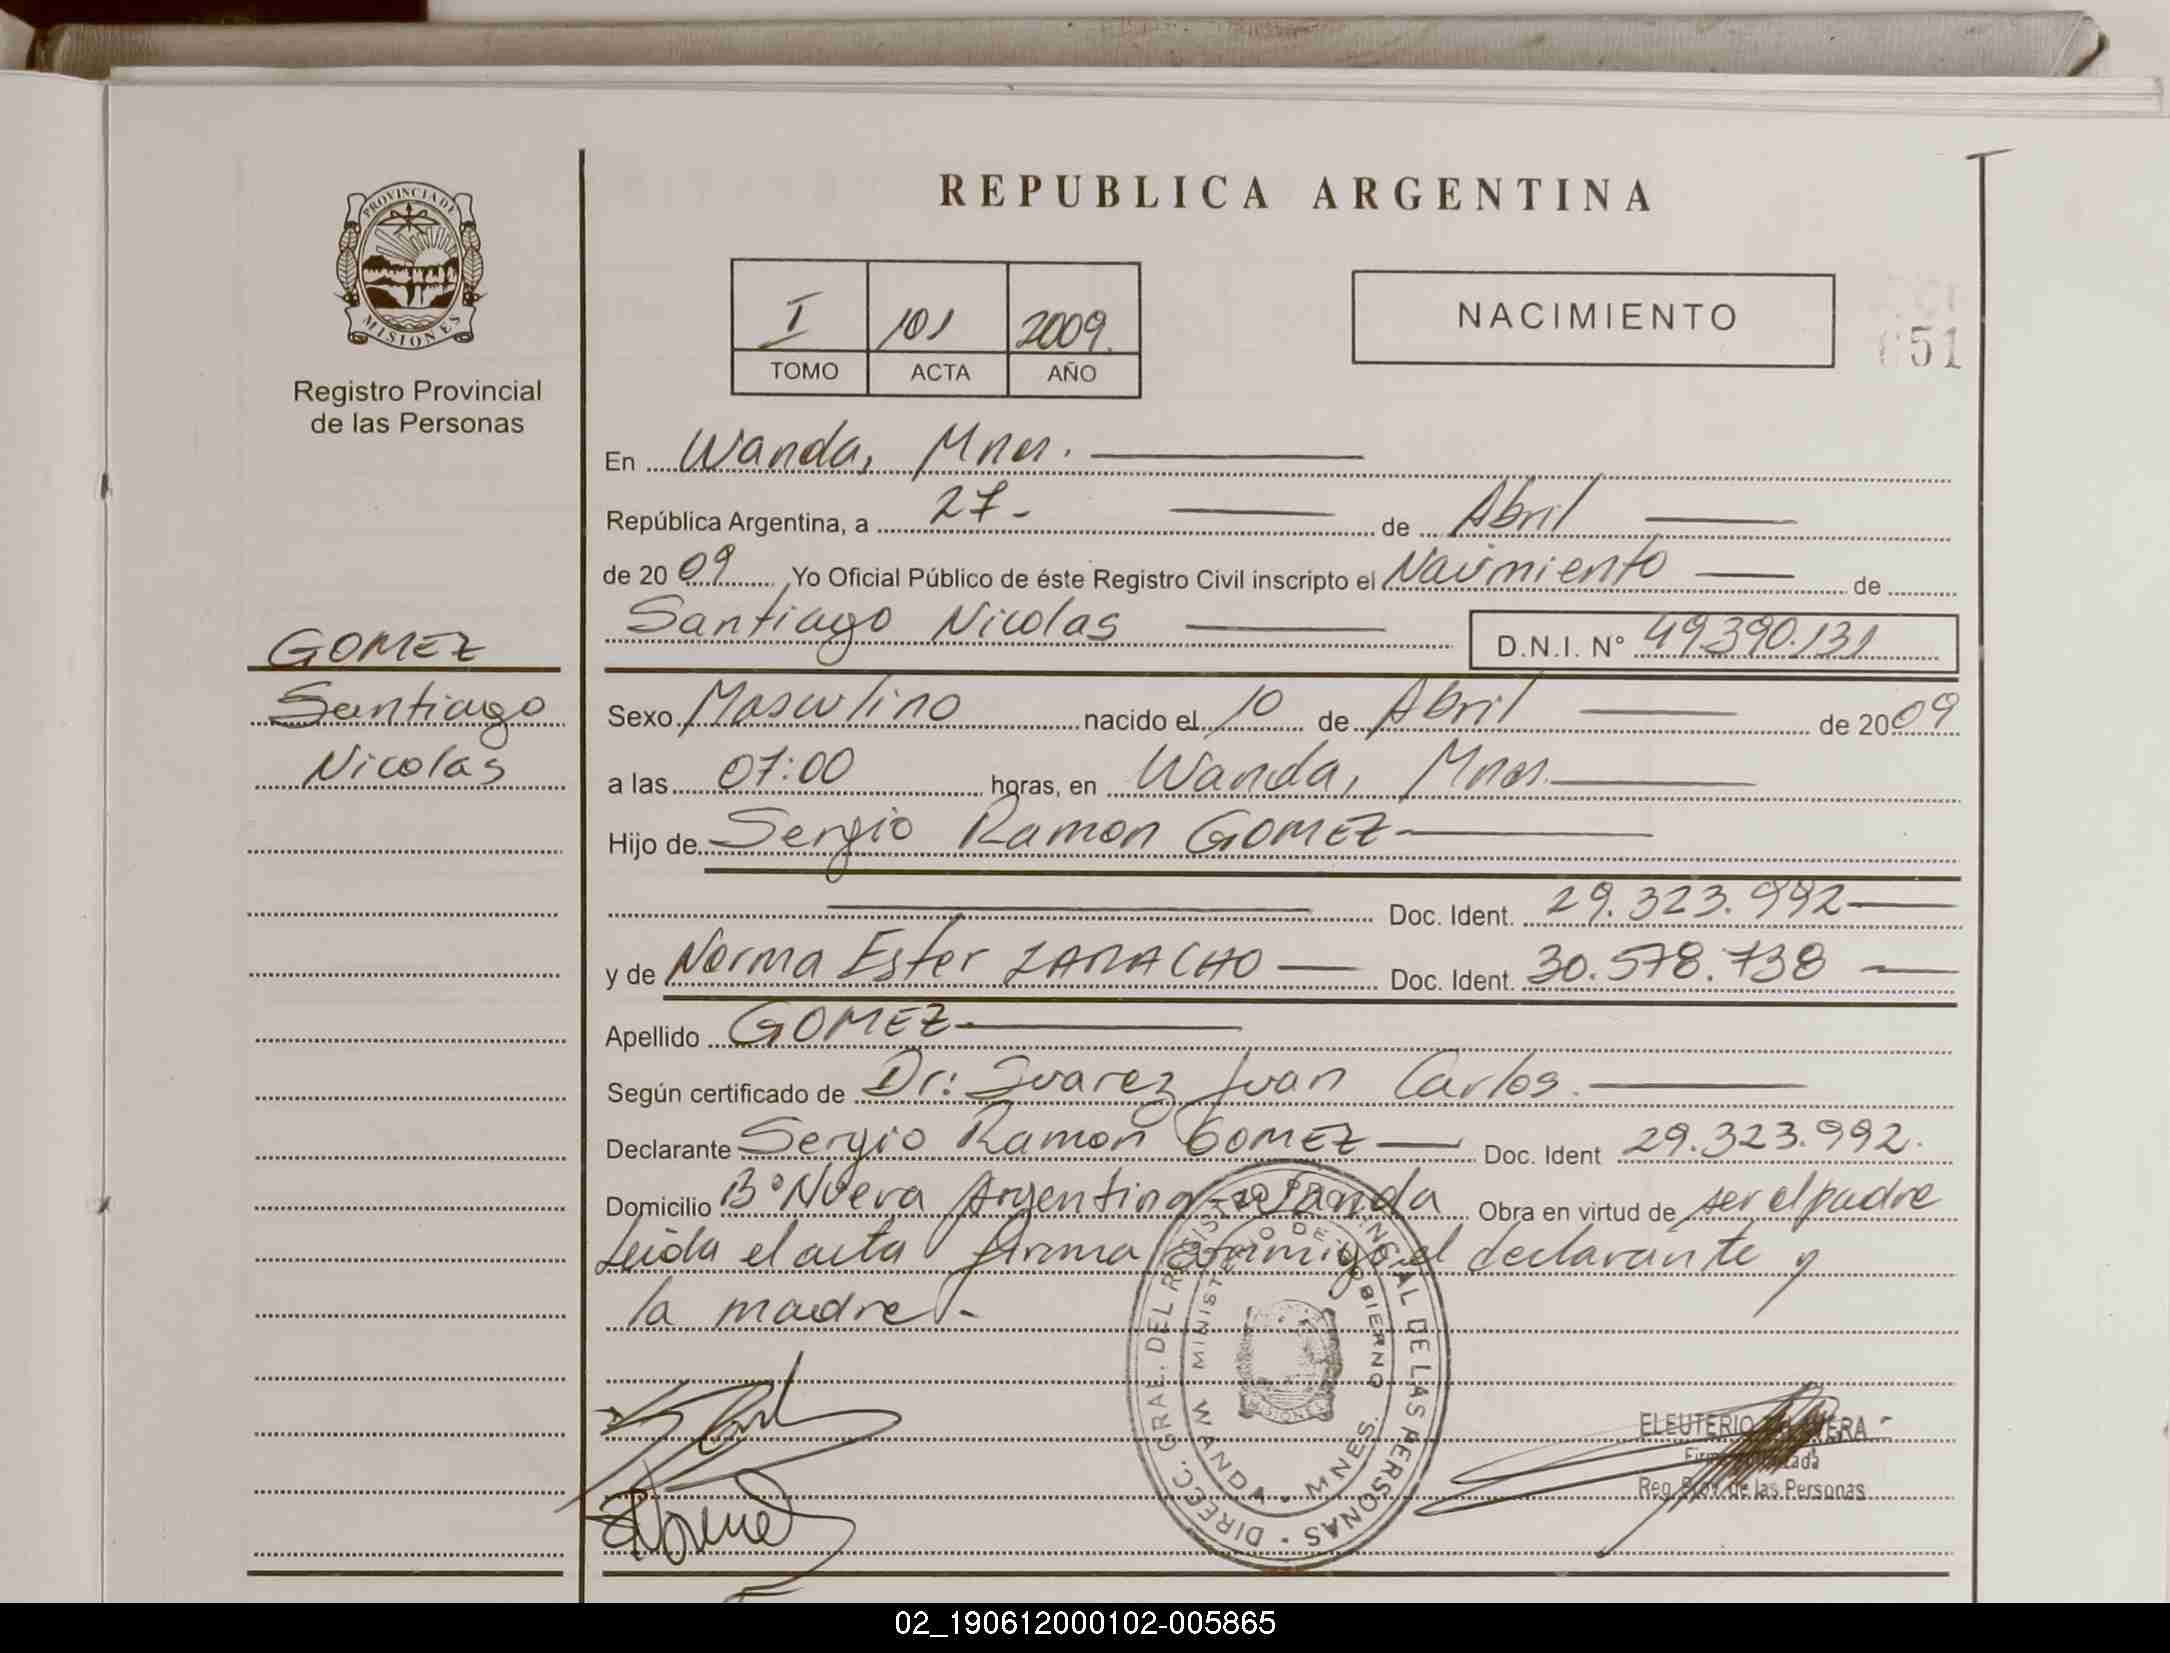 REPUBLICA ARGENTINA
PROVINCIA DE
MISIONES
Registro Provincial
de las Personas
I 101 2009.
TOMO ACTA AÑO
NACIMIENTO
51
En Wanda, Mnes.
República Argentina, a 27- de Abril
de 2009 Yo Oficial Público de éste Registro Civil inscripto el Nacimiento de
Santiago Nicolas D.N.I. Nº 49390.131
GOMEZ
Santiago
Nicolas
Sexo Masculino nacido el 10 de Abril de 2009
a las 07:00 horas, en Wanda, Mnes.
Hijo de Sergio Ramon GOMEZ
Doc. Ident. 29.323.992
y de Norma Ester ZARACHO Doc. Ident. 30.578.738
Apellido GOMEZ
Según certificado de Dr: Suarez Juan Carlos.
Declarante Sergio Ramon GOMEZ Doc. Ident 29.323.992.
Domicilio Bº Nueva Argentina - Wanda Obra en virtud de ser el padre
Leida el acta firma conmigo el declarante y
la madre.-
DIREC. GRAL. DEL REGISTRO PROVINCIAL DE LAS PERSONAS
MINISTERIO DE GOBIERNO
MISIONES
WANDA - MNES.
ELEUTERIO
Reg. Prov. de las Personas
02_190612000102-005865